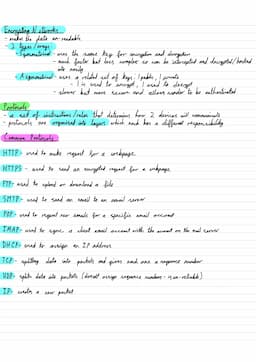 Encrypting Networks
- makes the data un-readable
- 2 types/ways:
- Symmetrical - uses the same key for encryption and decryption
- much faster but less complex so can be intercepted and decrypted/hacked into easily
- Asymmetrical - uses a related set of keys: 1 public, 1 private
- 1 is used to encrypt, 1 used to decrypt
- slower but more secure and allows sender to be authenticated
Protocols
- a set of instructions/rules that determines how 2 devices will communicate
- protocols are organised into layers which each has a different responsibility
Common Protocols
HTTP - used to make request for a webpage
HTTPS - used to send an encrypted request for a webpage
FTP - used to upload or download a file
SMTP - used to send an email to an email server
POP - used to request new emails for a specific email account
IMAP - used to sync a client email account with the account on the mail server
DHCP - used to assign an IP address
TCP - splitting data into packets and gives each one a sequence number
UDP - splits data into packets (doesn't assign sequence numbers - is un-reliable)
IP - creates a new packet